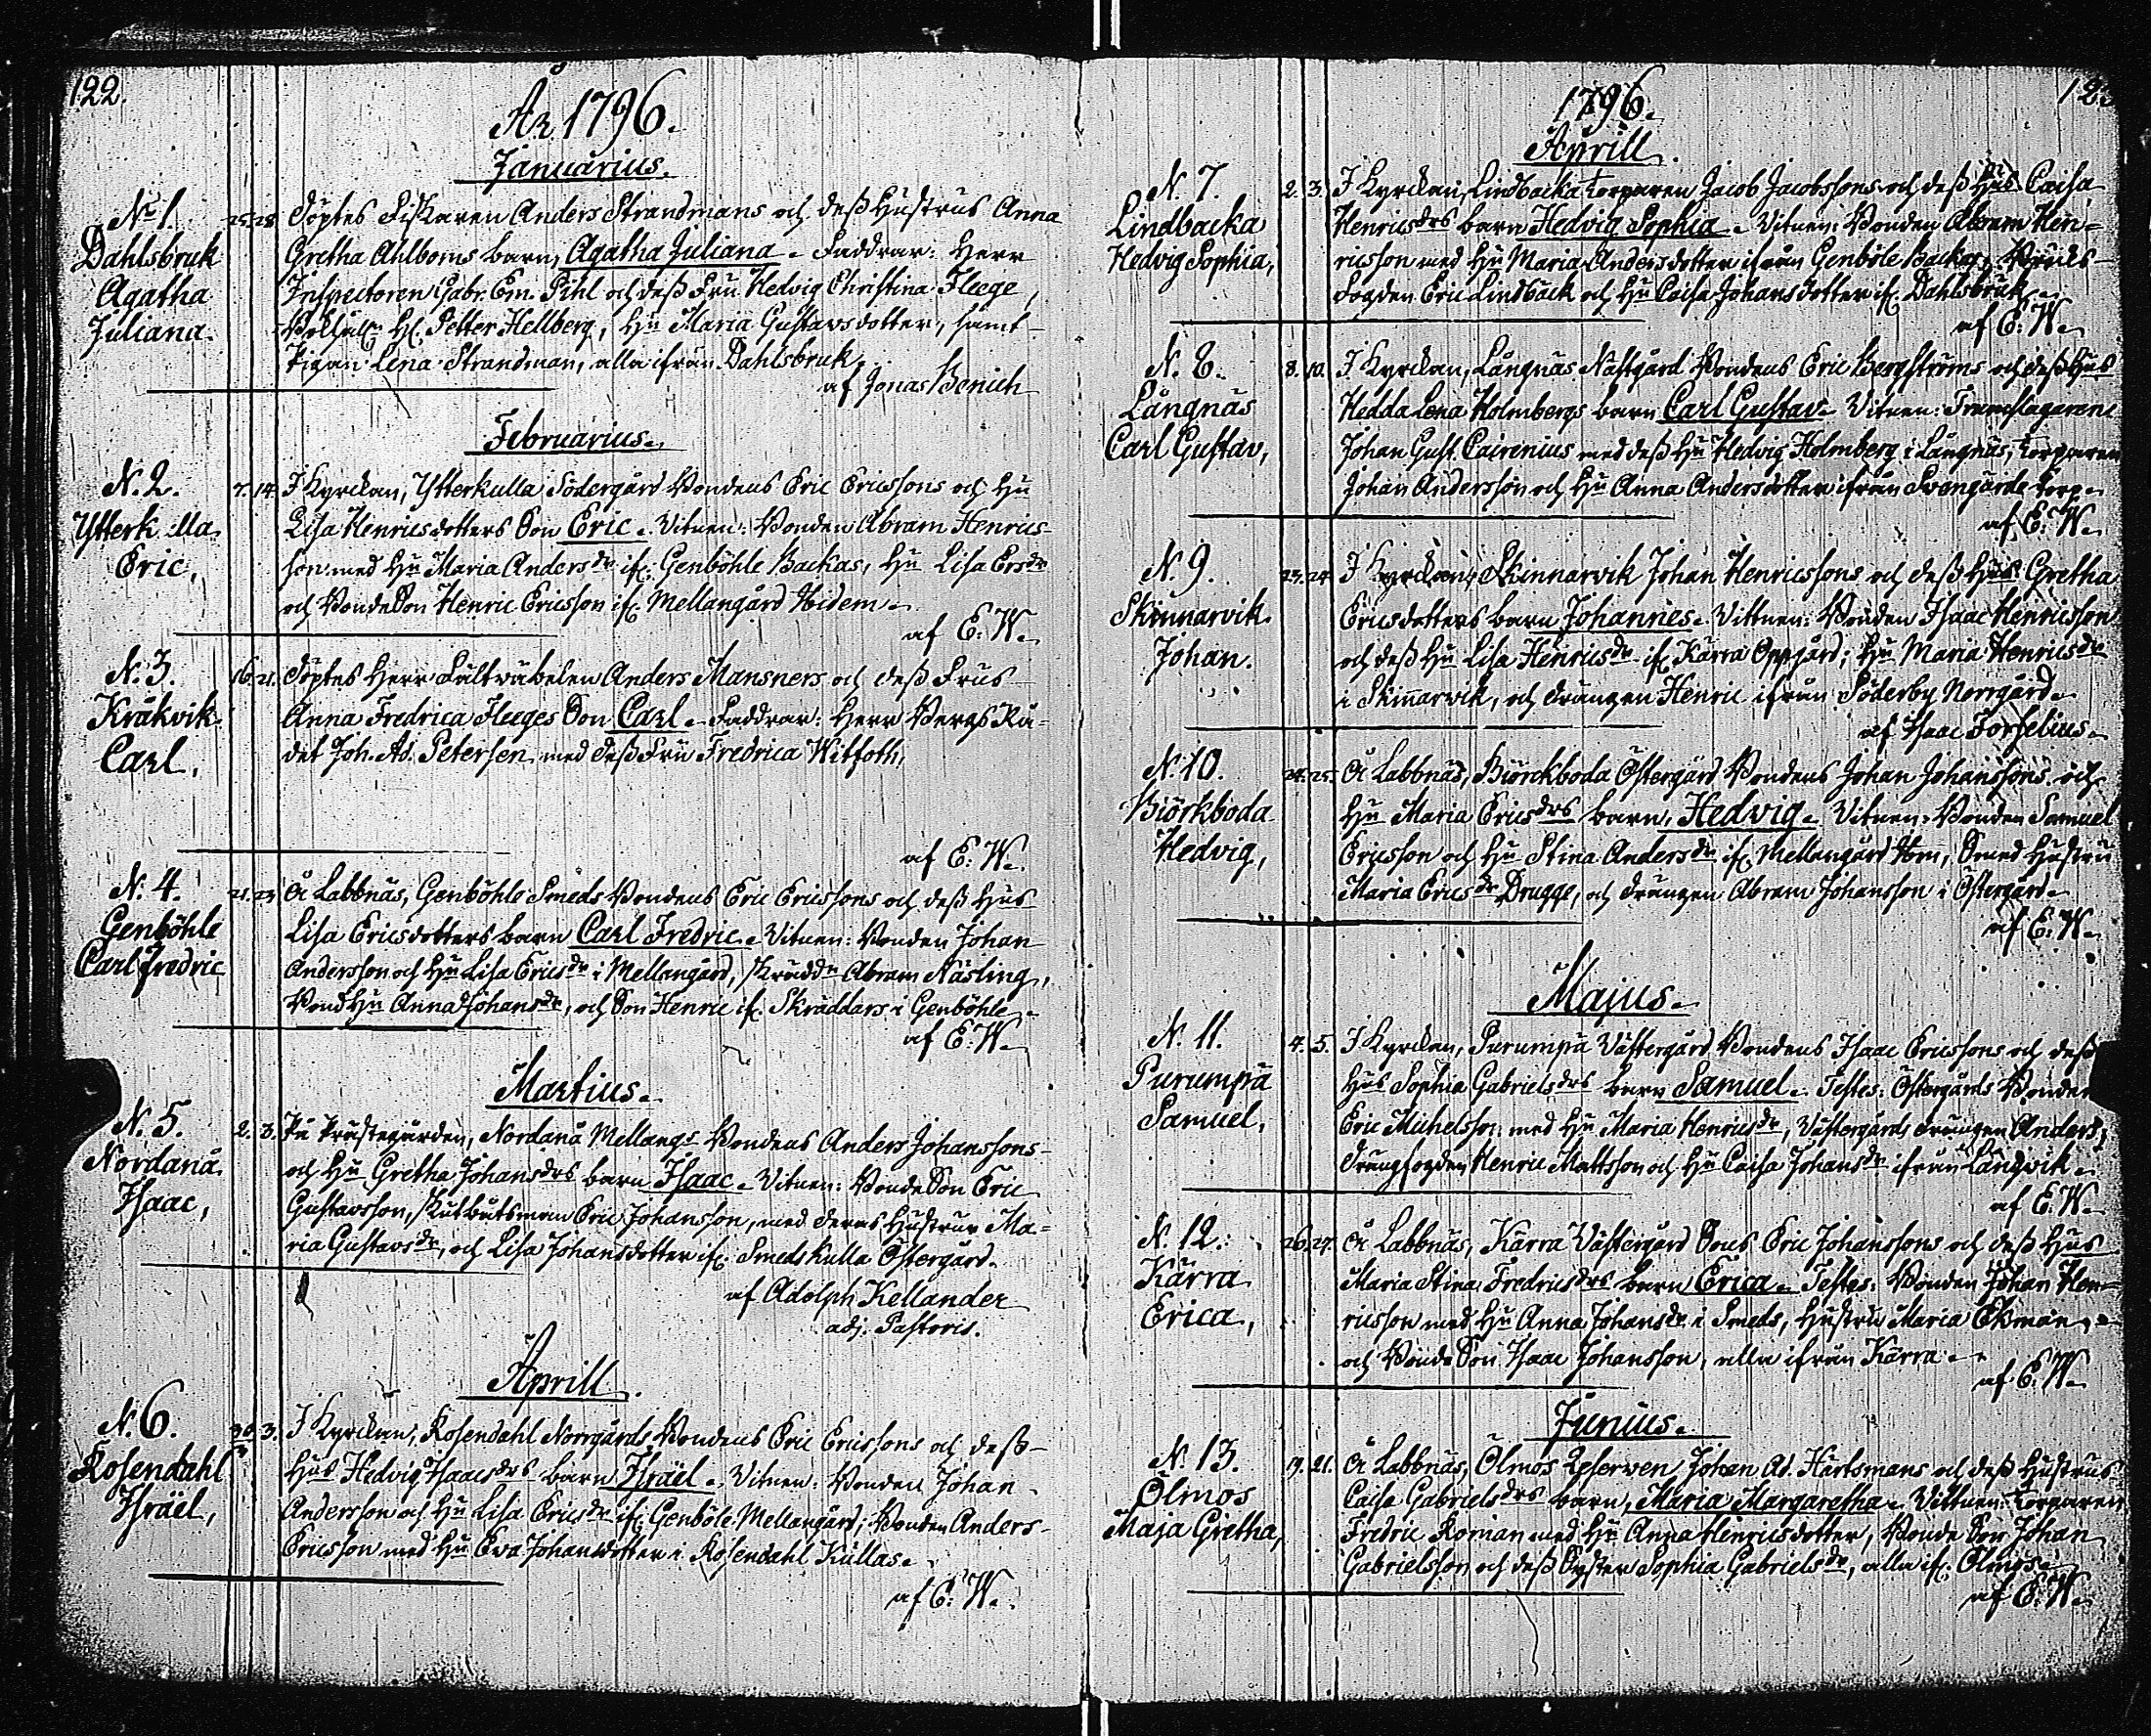 122.
År 1796.
Januarius.
No 1. 25. 28. Döptes Fiskaren Anders Strandmans och dess Hustrus Anna
Dahlsbruk Gretha Ahlboms barn, Agatha Juliana. Faddrar: Herr
Agatha Inspectoren Gabr. Em. Pihl och dess Fru Hedvig Christina Fleege,
Juliana. Hr. Petter Hellberg, Hu Maria Gustavsdotter, samt
Pigan Lena Strandman, alla ifrån Dahlsbruk.
af Jonas Benich
Februarius.
N. 2. 7. 14. I Kyrckan, Ytterkulla Södergård Bondens Eric Ericssons och Hu
Ytterkulla Lisa Henricsdotters Son Eric. Vitnen: Bonden Abram Henrics-
Eric, son med Hu Maria Andersdr. if. Genböhle Backas, Hu Lisa Ersdr
och BondeSon Henric Ericsson if. Mellangård Hidem.
af E. W.
N. 3. 16. 21. Döptes Herr Fältväbelen Anders Mansners och dess Frus
Kråkvik Anna Fredrica Fleeges Son Carl. Faddrar: Herr BergsRå-
Carl, det Joh. Ad. Petersen med dess Fru Fredrica Witfoth,
af E. W.
N. 4. 21. 23. Å Labbnäs, Genböhle Smeds Bondens Eric Ericssons och dess Hus
Genböhle Lisa Ericsdotters barn Carl Fredric. Vitnen: Bonden Johan
Carl Fredric Andersson och Hu Lisa Ericsdr i Mellangård, Skräddn Abram Näsling,
BondHu Anna Johansdr, och Son Henric if. Skräddars i Genböhle.
af E. W.
Martius.
N. 5. 2. 3. På Prästegården, Nordanå Mellangs Bondens Anders Johanssons
Nordanå och Hu Gretha Johansdrs barn Isaac. Vitnen: BondeSon Eric
Isaac, Gustavsson, Skutbåtsman Eric Johansson, med deras Hustrur Ma-
ria Gustavsdr, och Lisa Johansdotter if. Smedskulla Östergård.
af Adolph Kellander
adj. Pastoris.
Aprill.
N. 6. 30. 3. I Kyrckan, Rosendahl Norrgårds Bondens Eric Ericssons och dess
Rosendahl Hus Hedvig Isaacsdrs barn Israël. Vitnen: Bonden Johan
Israël, Andersson och Hu Lisa Ericsdr if. Genböle Mellangård; Bonden Anders
Ericsson med Hu Eva Johansdotter i Rosendahl Kullas.
af E. W.
1796.
Aprill.
N. 7. 2. 3. I Kyrckan, Lindbacka Torparen Jacob Jacobssons och dess Hus Caisa
Lindbacka Henricsdrs barn Hedvig Sophia. Vitnen: Bonden Abram Hen-
Hedvig Sophia, ricsson med Hu Maria Andersdotter ifrån Genböle Backas; Bruks-
Fogden Eric Lindbäck och Hu Caisa Johansdotter if. Dahlsbruk.
af E. W.
N. 8. 8. 10. I Kyrckan, Långnäs Nästgård Bondens Eric Bergströms och dess Hus
Långnäs Hedda Lena Holmbergs barn Carl Gustav. Vitnen: Trumslagaren
Carl Gustav, Johan Gust. Cairenius med dess Hu Hedvig Holmberg i Långnäs, Torparen
Johan Andersson och Hu Anna Andersdotter ifrån Svengårds Torp.
af E. W.
N. 9. 23. 24. I Kyrckan, Skinnarvik Johan Henricssons och dess Hus Gretha
Skinnarvik Ericsdotters barn Johannes. Vittnen: Bonden Isaac Henricsson
Johan. och dess Hu Lisa Henricsdr if. Kärra Oppgård; Hu Maria Henricsdr
i Skinnarvik, och drängen Henric ifrån Söderby Norrgård.
af Isaac Forselius.
N. 10. 24. 25. Å Labbnäs, Biörckboda Östergård Bondens Johan Johanssons och
Biörkboda Hu Maria Ericsdrs barn, Hedvig. Vitnen: Bonden Samuel
Hedvig, Ericsson och Hu Stina Andersdr if. Mellangård Hem, Smed Hustru
Maria Ericsdr Drugge, och drängen Abram Johansson i Östergård.
af E. W.
Majus.
N. 11. 4. 5. I Kyrckan, Purumpä Västergård Bondens Isaac Ericssons och dess
Purumpä Hus Sophia Gabrielsdrs barn Samuel. Testes: Östergårds Bonden
Samuel, Eric Michelsson med Hu Maria Henricsdr, Västergårds drängen Anders,
drängfogden Henric Mattsson och Hu Caisa Johansdr ifrån Långvik.
af E. W.
N. 12. 26. 27. Å Labbnäs, Kärra Västergård Sons Eric Johanssons och dess Hus
Kärra Maria Stina Fredricsdrs barn Erica. Testes: Bonden Johan Hen-
Erica, ricsson med Hu Anna Johansdr i Smeds, Hustru Maria Ekman,
och BondeSon Isaac Johansson, alla ifrån Kärra.
af E. W.
Junius.
N. 13. 19. 21. Å Labbnäs, Ölmos Johan Ad. Hartsmans och dess Hustrus
Ölmos Caisa Gabrielsdrs barn, Maria Margaretha. Vittnen: Torparen
Maja Gretha, Fredric Roman med Hu Anna Henricsdotter, BondeSon Johan
Gabrielsson och dess Syster Sophia Gabrielsdr, alla if. Ölmos.
af E. W.